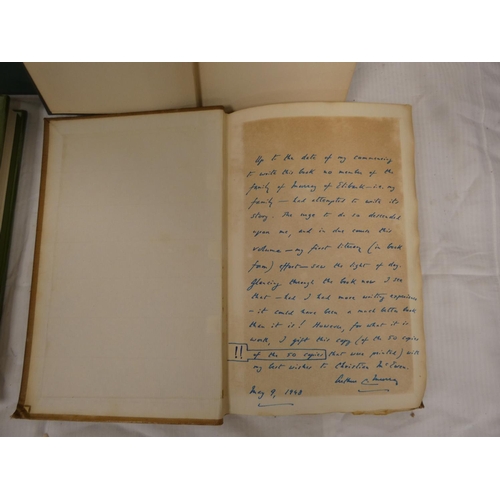 Up to the date of my commencing
to write this book no member of the
family of Murray of Elibank — i.e. my
family — had attempted to write its
story. The urge to do so descended
upon me, and in due course this
volume — my first literary (in book
form) effort — saw the light of day.
Glancing through the book now I see
that — had I had more writing experience
— it could have been a much better book
than it is! However, for what it is
worth, I gift this copy (of the 50 copies
!! of the 50 copies that were printed) with
my best wishes to Christian McEwen.
Arthur C Murray
May 9, 1948